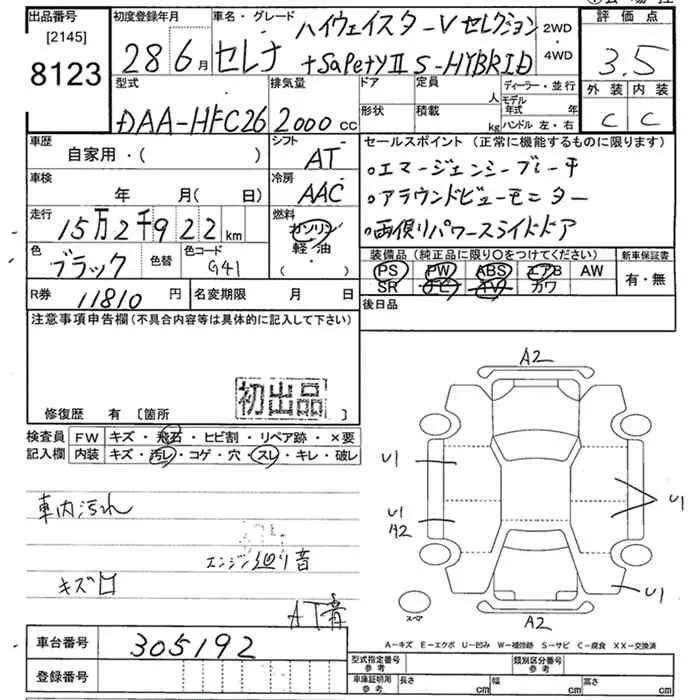 出品番号
[2145]
8123
初度登録年月
28 6月
車名・グレード
セレナ
ハイウェイスターV セレクション
+SafetyII S-HYBRID
2WD
・4WD
評価点
3.5
外装 内装
C C
型式
DAA-HFC26
排気量
2000cc
ドア
形状
定員
人
積載
kg
ディーラー・並行
モデル年式 年
ハンドル 左・右
車歴
自家用・( )
シフト
AT
車検
年 月(日)
冷房
AAC
走行
15万2千922km
燃料
ガソリン
軽・油
( )
色
ブラック
色替
色コード
G41
R券
11810円
名変期限 月 日
セールスポイント(正常に機能するものに限ります)
・エマージェンシーブレーキ
・アラウンドビューモニター
・両側パワースライドドア
装備品(純正品に限り○をつけてください)
PS PW ABS エアB AW
SR ナビ TV カワ
新車保証書
有・無
後日品
注意事項申告欄(不具合内容等は具体的に記入して下さい)
初出品
修復歴 有 [箇所 ]
検査員
記入欄
FW キズ・飛石・ヒビ割・リペア跡・×要
内装 キズ・汚レ・コゲ・穴・スレ・キレ・破レ
車内汚れ
エンジン廻り音
キズ凹
AT音
A2
U1
U1
U1
A2
U1
スペア
A2
A-キズ E-エクボ U-凹み W-補修跡 S-サビ C-腐食 XX-交換済
車台番号
305192
登録番号
型式指定番号
参考
類別区分番号
参考
車庫証明用
参考
長さ cm
幅 cm
高さ cm